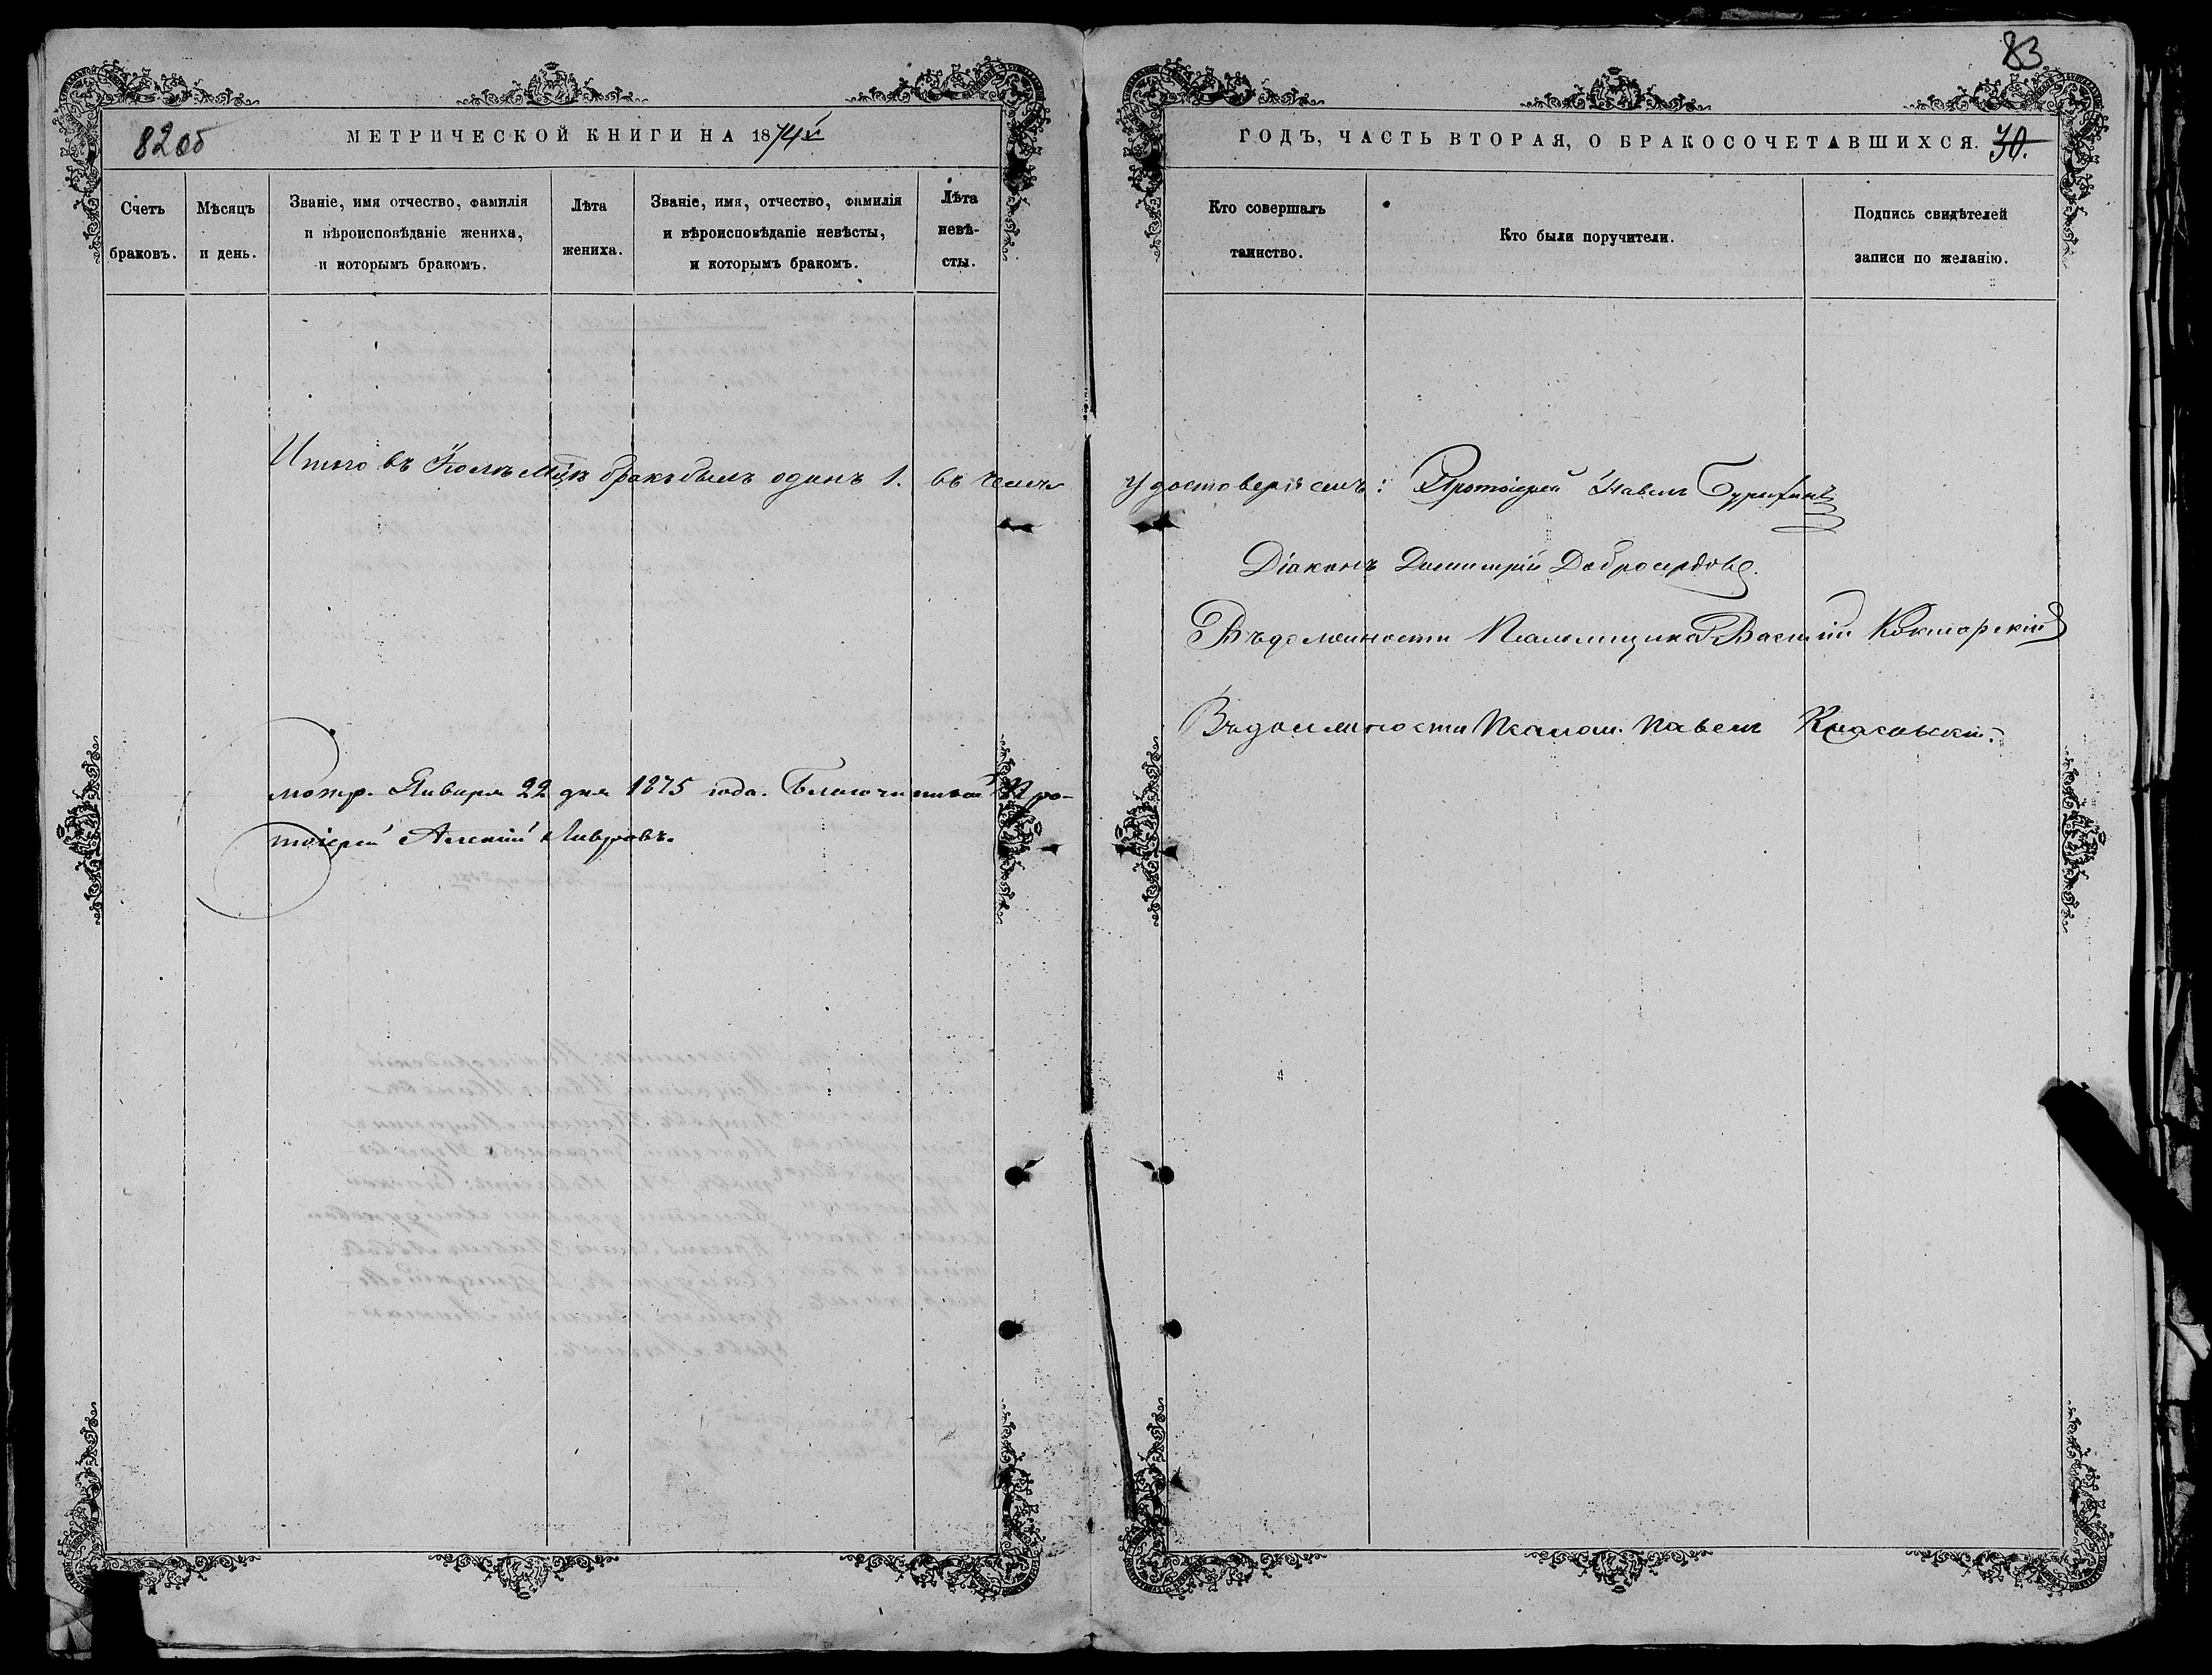 83
82об
МЕТРИЧЕСКОЙ КНИГИ НА 1874й
ГОДЪ, ЧАСТЬ ВТОРАЯ, О БРАКОСОЧЕТАВШИХСЯ. 30.
Счетъ браковъ.
Мѣсяцъ и день.
Званіе, имя отчество, фамилія
и вѣроисповѣданіе жениха,
и которымъ бракомъ.
Лѣта жениха.
Званіе, имя, отчество, фамилія
и вѣроисповѣданіе невѣсты,
и которымъ бракомъ.
Лѣта невѣ-
сты.
Кто совершалъ
таинство.
Кто были поручители.
Подпись свидѣтелей
записи по желанію.
Итого въ бракъ былъ одинъ 1. въ чемъ
удостоверяемъ: Протоіерей Павелъ
Діаконъ Димитрій Добросердовъ.
Въ должности Псаломщика Василій
Въ должности Псалом. Павелъ
Смотр. Января 22 дня 1875 года. Благочинный Про-
тоіерей Алексій Лавровъ.